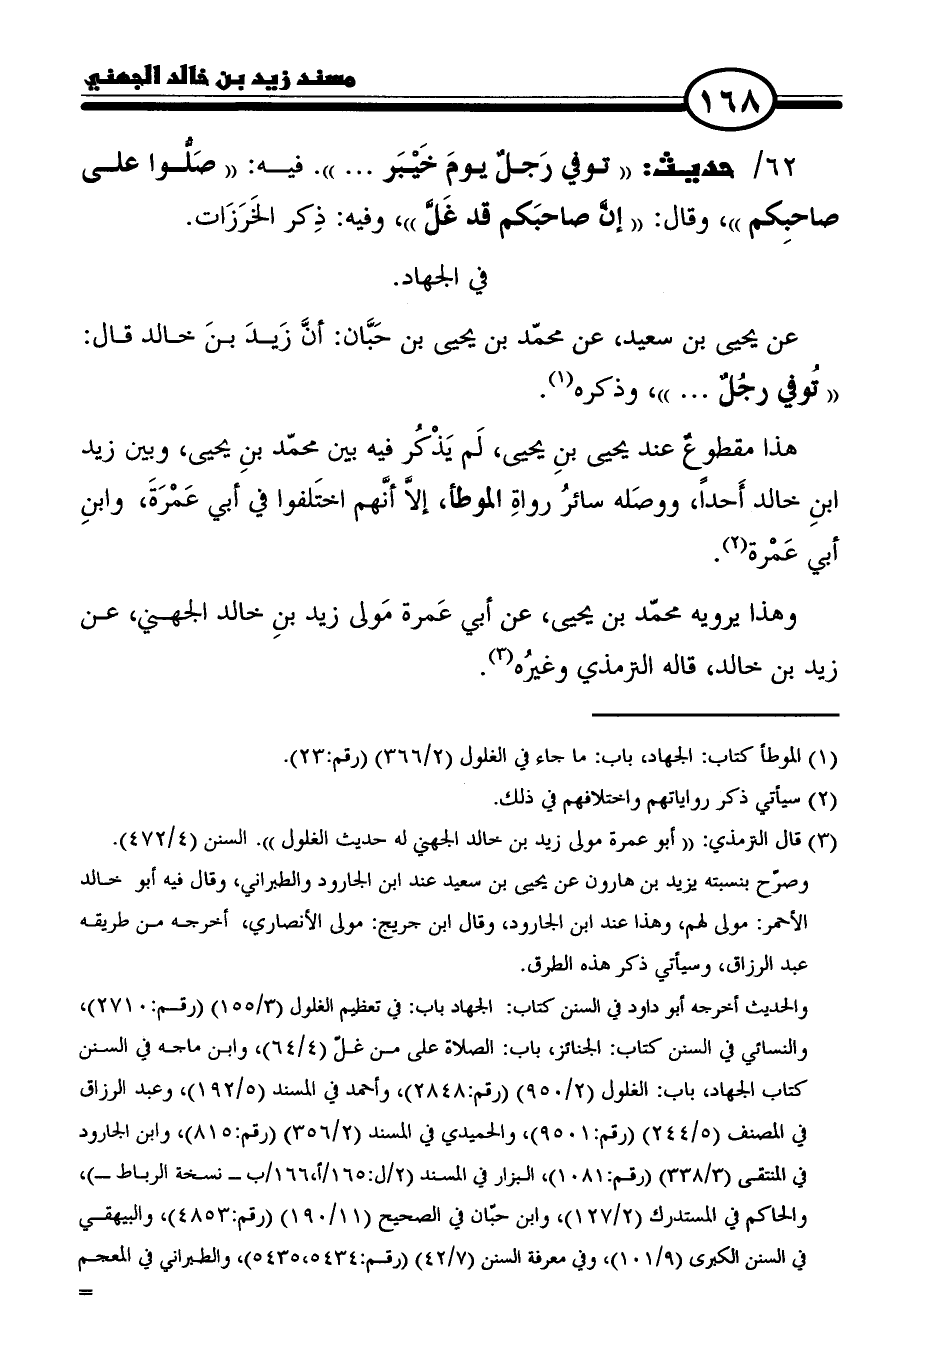 مسند زيد بن خالد الجهني
١٦٨
٦٢/ حديث: « توفي رَجلٌ يومَ خَيْبَر ... ». فيه: « صَلُّوا على
صاحبِكم »، وقال: « إنَّ صاحبَكم قد غَلَّ »، وفيه: ذِكر الخَرَزَات.
في الجهاد.
عن يحيى بن سعيد، عن محمّد بن يحيى بن حَبَّان: أنَّ زَيدَ بنَ خالد قال:
« تُوفي رجُلٌ ... »، وذكره(١).
هذا مقطوعٌ عند يحيى بنِ يحيى، لَم يَذْكُر فيه بين محمّد بنِ يحيى، وبين زيد
ابنِ خالد أَحداً، ووصَله سائرُ رواةِ الموطأ، إلاَّ أنَّهم اختَلفوا في أبي عَمْرَةَ، وابنِ
أبي عَمْرة(٢).
وهذا يرويه محمّد بن يحيى، عن أبي عَمرة مَولى زيد بنِ خالد الجهني، عن
زيد بن خالد، قاله الترمذي وغيرُه(٣).
(١) الموطأ كتاب: الجهاد، باب: ما جاء في الغلول (٣٦٦/٢) (رقم:٢٣).
(٢) سيأتي ذكر رواياتهم واختلافهم في ذلك.
(٣) قال الترمذي: « أبو عمرة مولى زيد بن خالد الجهني له حديث الغلول ». السنن (٤٧٢/٤).
وصرّح بنسبته يزيد بن هارون عن يحيى بن سعيد عند ابن الجارود والطبراني، وقال فيه أبو خالد
الأحمر: مولى لهم، وهذا عند ابن الجارود، وقال ابن جريج: مولى الأنصاري، أخرجه من طريقه
عبد الرزاق، وسيأتي ذكر هذه الطرق.
والحديث أخرجه أبو داود في السنن كتاب: الجهاد باب: في تعظيم الغلول (١٥٥/٣) (رقم:٢٧١٠)،
والنسائي في السنن كتاب: الجنائز، باب: الصلاة على من غلّ (٦٤/٤)، وابن ماجه في السنن
كتاب الجهاد، باب: الغلول (٩٥٠/٢) (رقم:٢٨٤٨)، وأحمد في المسند (١٩٢/٥)، وعبد الرزاق
في المصنف (٢٤٤/٥) (رقم:٩٥٠١)، والحميدي في المسند (٣٥٦/٢) (رقم:٨١٥)، وابن الجارود
في المنتقى (٣٣٨/٣) (رقم:١٠٨١)، البزار في المسند (٢/ل:١٦٥/أ،١٦٦/ب ـ نسخة الرباط ـ)،
والحاكم في المستدرك (١٢٧/٢)، وابن حبّان في الصحيح (١٩٠/١١) (رقم:٤٨٥٣)، والبيهقي
في السنن الكبرى (١٠١/٩)، وفي معرفة السنن (٤٢/٧) (رقم:٥٤٣٤،٥٤٣٥)، والطبراني في المعجم
=